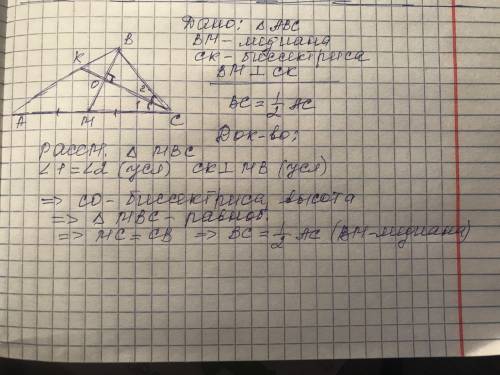 Дано: △ABC
BM - медиана
CK - биссектриса
BM ⊥ CK
BC = 1/2 AC
Док-во:
B
K
O
2
1
A
M
C
Рассм. △ MBC
∠1=∠2 (усл) CK⊥MB (усл)
=> CO - биссектриса, высота
=> △ MBC - равноб.
=> MC = CB => BC = 1/2 AC (BM-медиана)